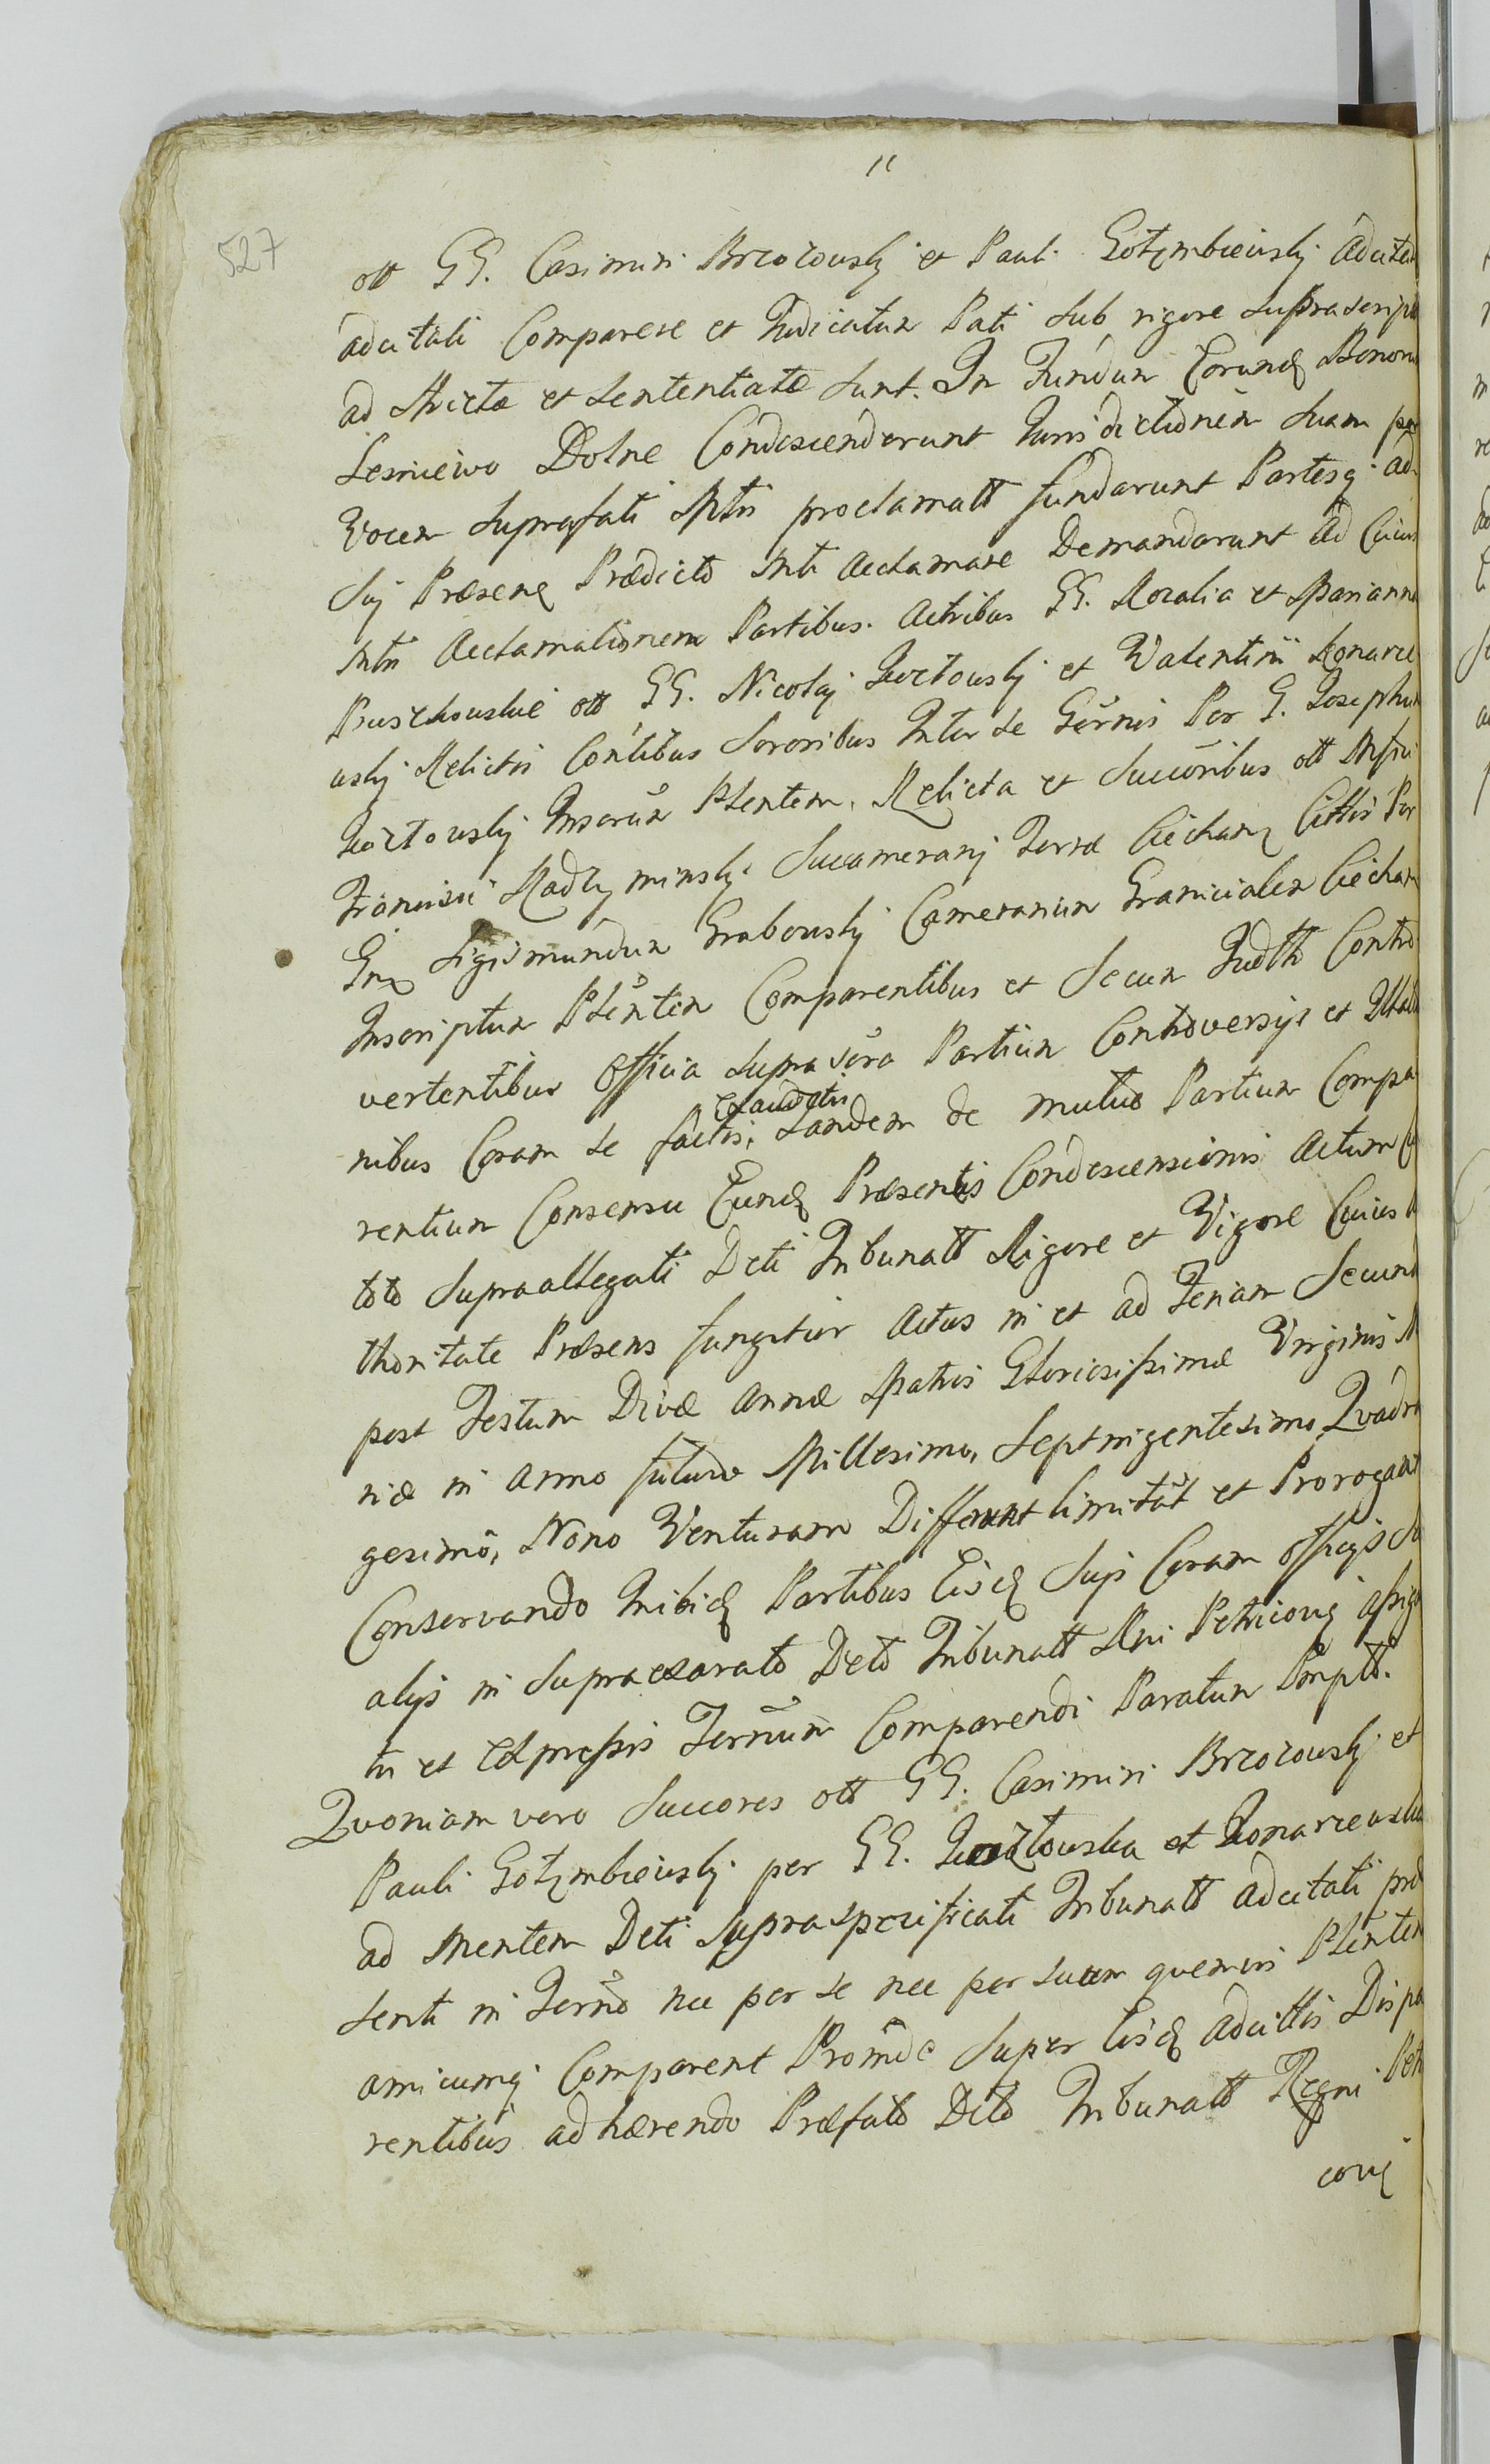 11
527
ott GG. Casimiri Brzozowskj et Pauli Gołymbiewskj adcitat
adcitati Comparere et Judicatum Pati sub rigore suprascripto
ad stricta et sententiata sunt. In Fundum Eorund Bonorum
Lesniewo Dolne Condescenderunt Jurisdictionem suam per
Vocem suprafati Mtri proclamatt fundarunt Partesq ad
suj Praesena Praedicto Mtri acclamare Demandarunt ad Cuius
Mtri acclamationem Partibus. Actribus GG. Rozalia et Marianna
Pruszkouskie ott GG. Nicolaj et Valentini
uskj Relictis Contibus Sororibus Inter se Gernis Per G. Josephum
Inserum Plentem. Relicta et Succoribus ott Mfici
Francisci Radzyminskj Succamerarj Terrae Ciechan Cittis Per
Gnm Sigismundum Grabouskj Camerarium Granicialem Ciechan
Inscriptum Plentem Comparentibus et Secum Judtt Contro
vertentibus Officia suprascra Partium Controversys et Illatio
nibus Coram se factis, Exauditis tandem de mutuo Partium Compa
rentium Consensu Eund Praesentis Condescensionis actum
toto supraallegati Dcti Tribunatt Rigore et Vigore Cuius
thoritate Praesens fungitur actus in et ad Feriam Secund
post Festum Divae Annae Matris Gloriosissimae Virginis
riae in anno futuro Millesimo, Septingentesimo, Quadra
gesimo, Nono Venturam Differunt limitat et Prorogant
Conservando Inibid Partibus Eisd suis Coram officys
alys in supraexarato Dcto Tribunatt Rni Petricov assign
tis et expressis Fernum Comparendi Paratum Pmptt.
Quoniam vero Succores ott GG. Casimiri Brzozouskj et
Pauli Gołymbieuskj per GG. et
ad mentem Dcti supraspecificati Tribunatt adcitati prae
senti in Ferno nec per se nec per suum quemvis Plentem
amicumq Comparent Proinde super Eisd adcittis Dispa
rentibus adhaerendo Praefato Dcto Tribunatt Regni Petri
cov